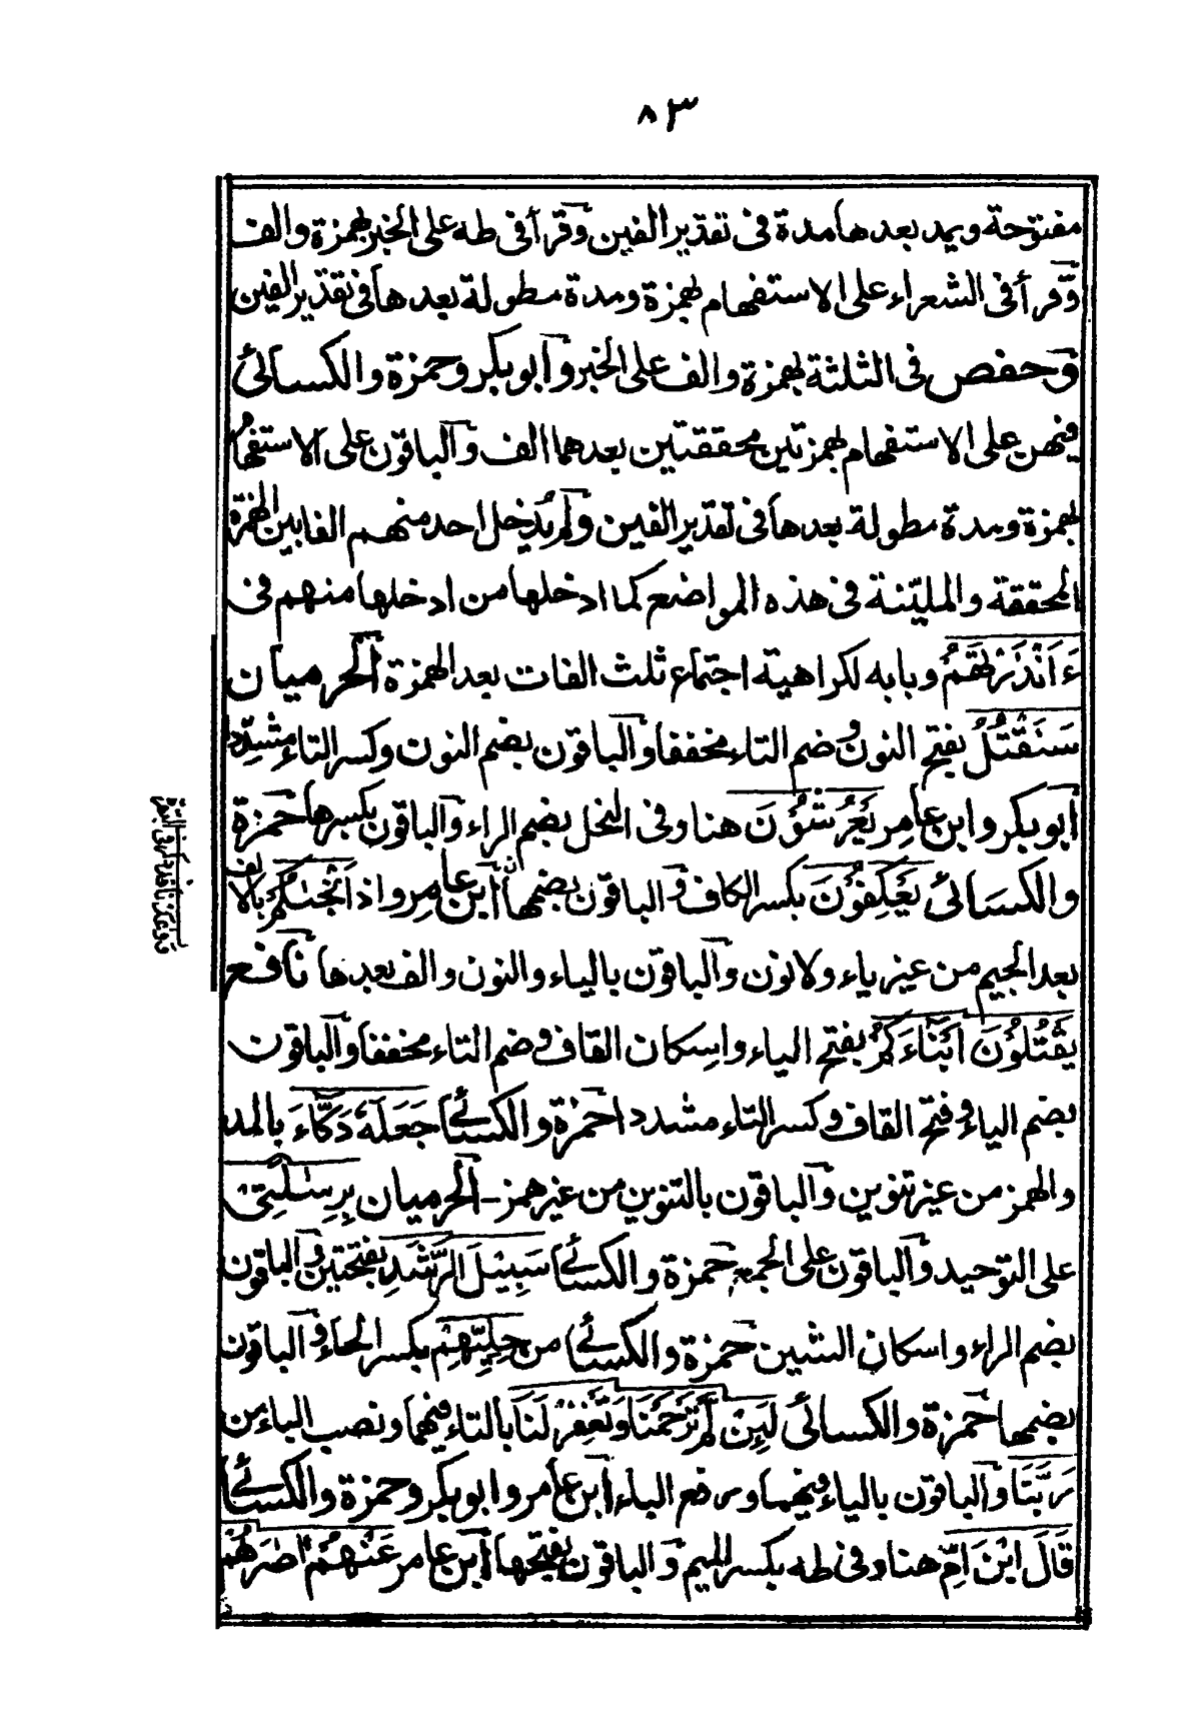 ٨٣
مفتوحة ويمد بعدها مدة فى تقدير الفين وقرأ فى طه على الخبر بهمزة والف
وقرأ فى الشعراء على الاستفهام بهمزة ومدة مطولة بعدها فى تقدير الفين
وحفص فى الثلثة بهمزة والف على الخبر وابو بكر وحمزة والكسائى
فيهن على الاستفهام بهمزتين محققتين بعدهما الف والباقون على الاستفهام
بهمزة ومدة مطولة بعدها فى تقدير الفين ولم يُدخل احد منهم الفا بين الهمزة
المحققة والمليّنة فى هذه المواضع كما ادخلها من ادخلها منهم فى
ءَاَنْذَرْتَهُمْ وبابه لكراهية اجتماع ثلث الفات بعد الهمزة الحرميان
سَنَقْتُلُ بفتح النون وضم التاء مخففا والباقون بضم النون وكسر التاء مشدِّدا
ابو بكر وابن عامِر يَعْرُشُوْنَ هنا وفى النحل بضم الراء والباقون بكسرها حمزة
والكسَائى يَعْكِفُوْنَ بكسر الكاف والباقون بضمها ابن عامِر واذ اَنْجٰىكُمْ بالالف
بعد الجيم من غير ياء ولا نون والباقون بالياء والنون والف بعدها نافع
يَقْتُلُوْنَ اَبْنَاءَكُمْ بفتح الياء واسِكان القاف وضم التاء مخففا والباقون
بضم الياء وفتح القاف وكسر التاء مشددا حمزة والكسائى جَعَلَهٗ دَكَّاءَ بالمد
والهمز من غير تنوين والباقون بالتنوين من غير همز - الحرميان بِرِسٰلَتِىْ
على التوحيد والباقون على الجمع حمزة والكسائى سَبِيْلَ الرَّشَدِ بفتحتين والباقون
بضم الراء واسكان الشين حمزة والكسائى من حِلِيِّهِمْ بكسر الحاء والباقون
بضمها حمزة والكسائى لَئِنْ لَّمْ تَرْحَمْنَا وَتَغْفِرْ لَنَا بالتاء فيهما ونصب الباء من
رَبَّنَا والباقون بالياء فيهما ورفع الباء ابن عامر وابو بكر وحمزة والكسائى
قَالَ ابْنَ اُمِّ هنا وفى طه بكسر الميم والباقون بفتحها ابن عامر عَنْهُمْ اٰصَرَهُمْ